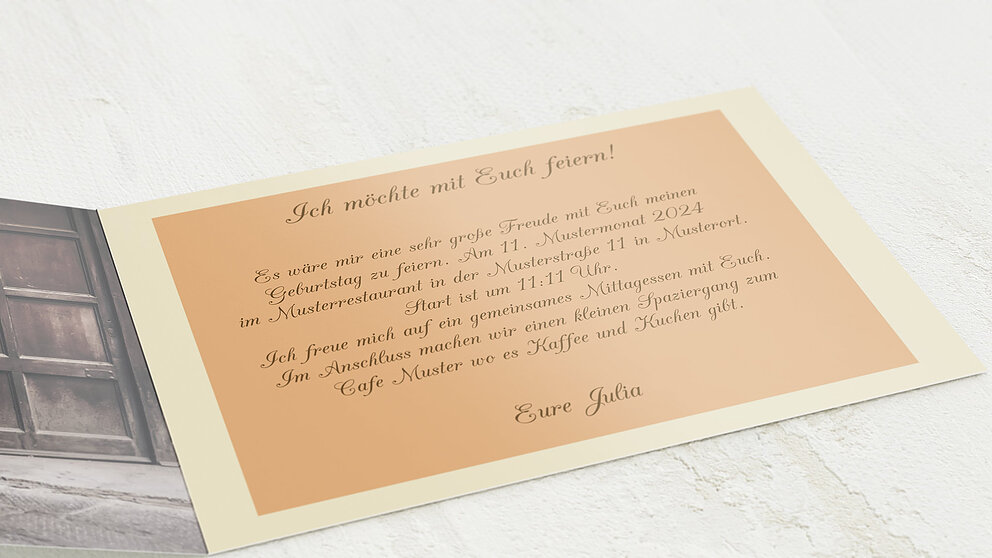 Ich möchte mit Euch feiern!
Es wäre mir eine sehr große Freude mit Euch meinen
Geburtstag zu feiern. Am 11. Mustermonat 2024
im Musterrestaurant in der Musterstraße 11 in Musterort.
Start ist um 11:11 Uhr.
Ich freue mich auf ein gemeinsames Mittagessen mit Euch.
Im Anschluss machen wir einen kleinen Spaziergang zum
Cafe Muster wo es Kaffee und Kuchen gibt.
Eure Julia